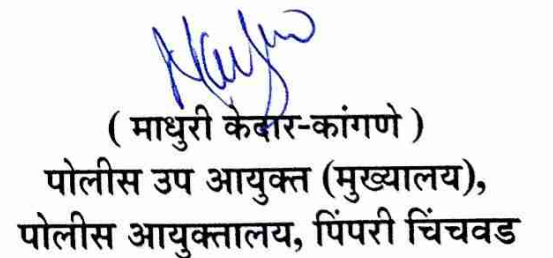 ( माधुरी केदार-कांगणे )
पोलीस उप आयुक्त (मुख्यालय),
पोलीस आयुक्तालय, पिंपरी चिंचवड